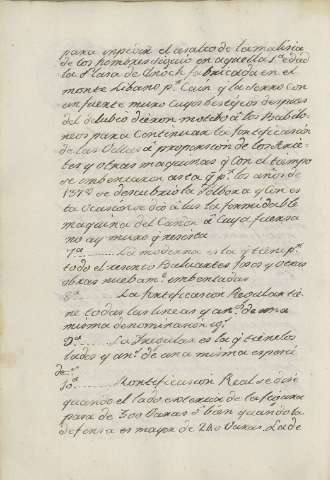 para impedir el asalto de la malicia
de los hombres siguio en aquella 1ª edad
la Plasa de Enoch fabricada en el
monte Libano pr. Cain y la serro con
un fuerte muro cuyos bestejios despues
del delubio dieron motibo à los Babilo-
neos para Continuar la fortificacion
de las Villas à proporcion de los Arie-
tes y otras maquinas q̃ con el tiempo
se imbentaron asta q̃ pr. los años de
1378 se descubrio la Polbora y con es
ta Ocasion se diò à lus la formidable
maquina del Cañon à cuya fuersa
no ay muro q̃ resista
7ª La moderna es la q̃ tiene pr.
todo el resinto Baluartes fosos y otras
obras nuebamte. imbentadas
8ª La fortificacion Regular tie
ne todas las lineas y angs. de una
misma denominasion igs.
9ª La Iregular es la q̃ tiene los
lados y angs. de una misma especie
des.
10ª Fortificasion Real se dise
quando el lado exterior de la figura
pasa de 300 Varas ò bien quando la
defensa es mayor de 240 Varas. La de